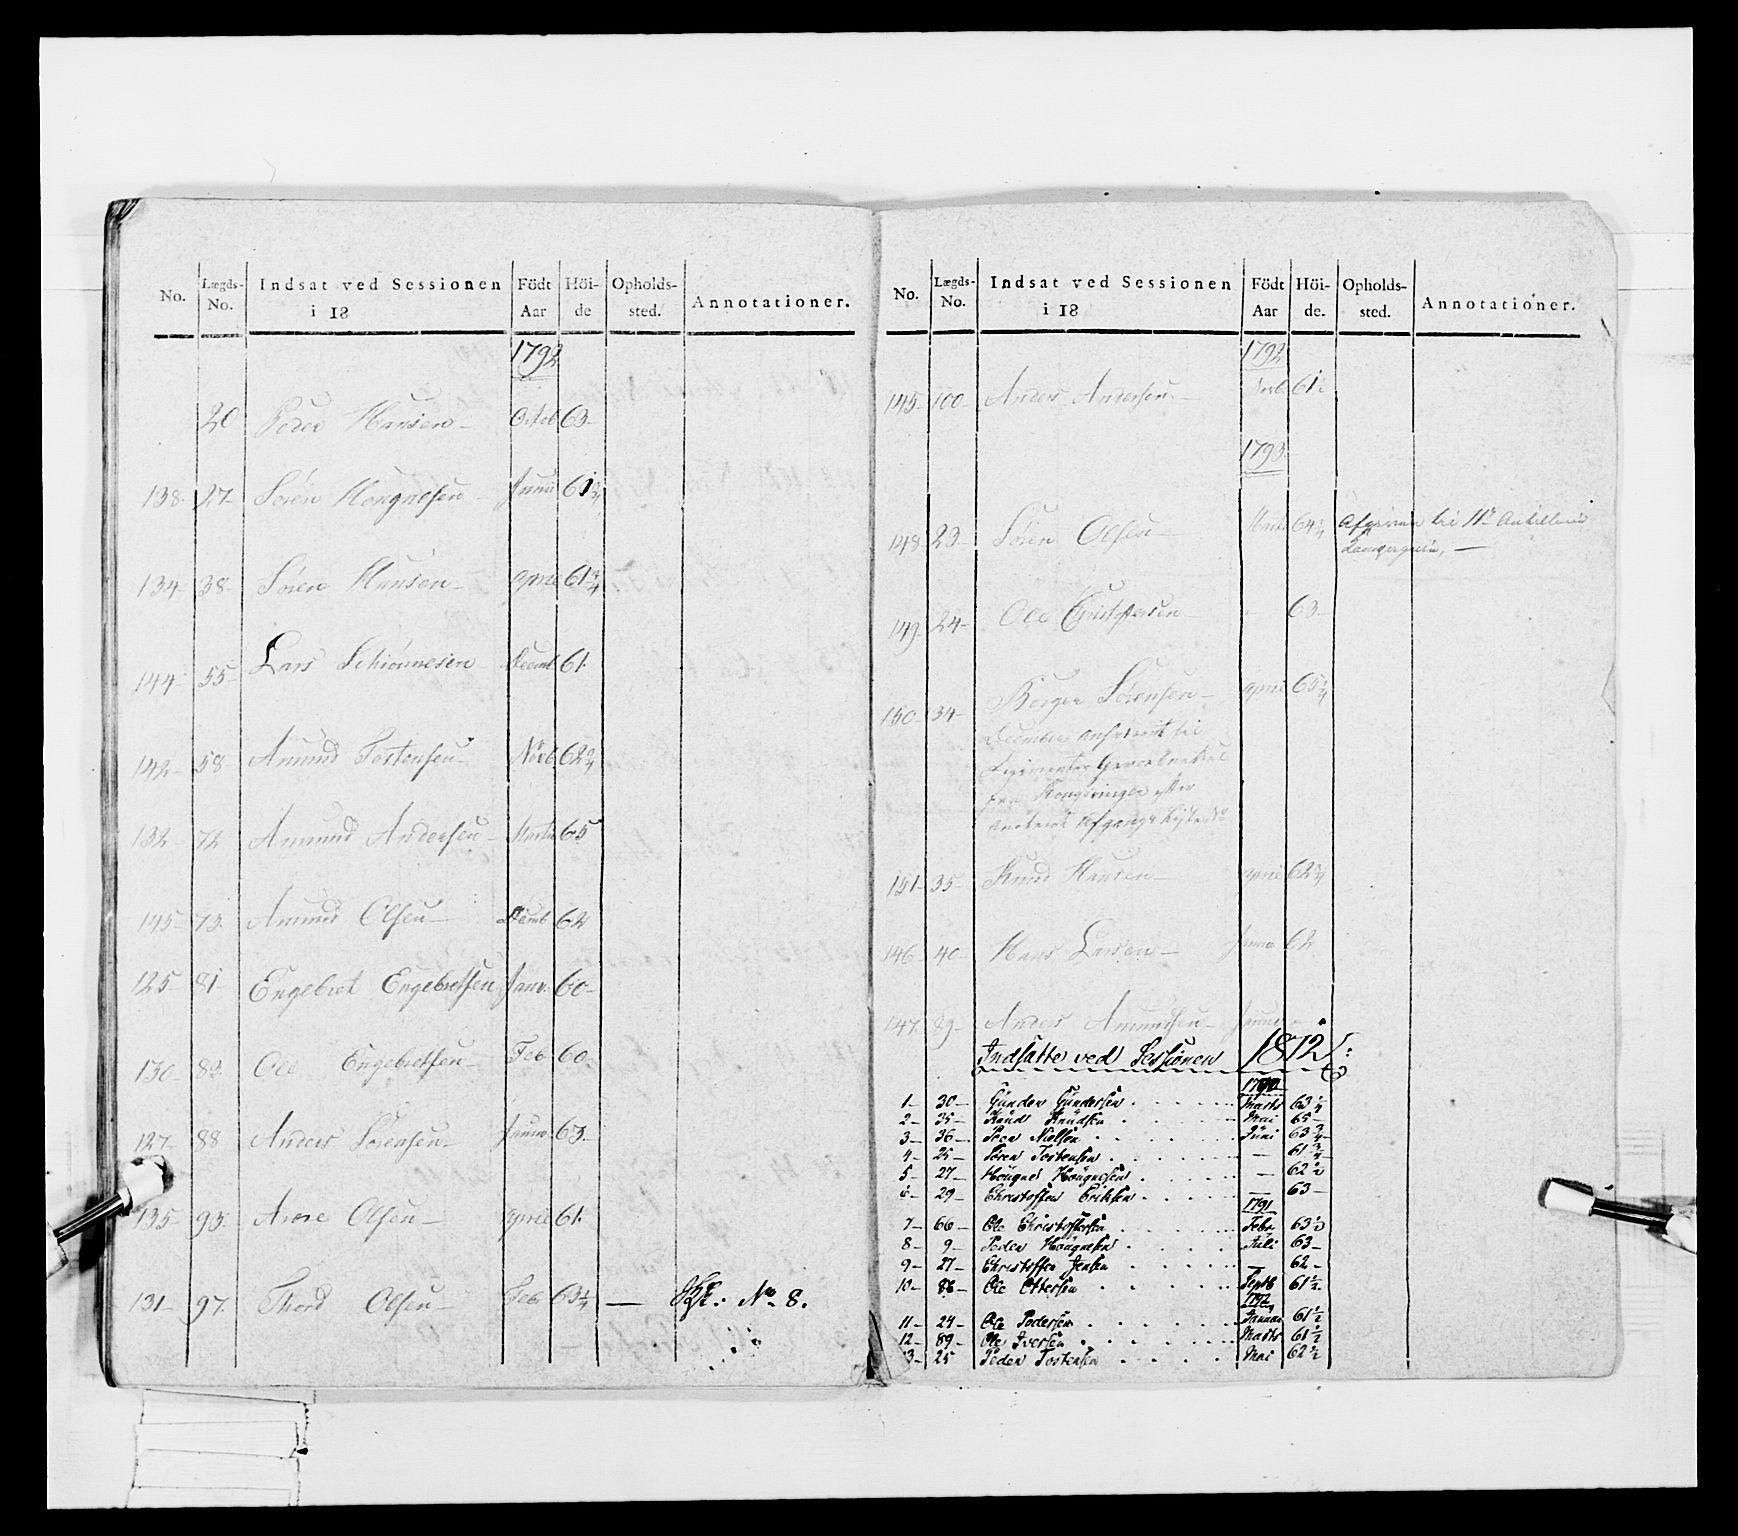 No. Lægds-No. Indsat ved Sessionen i 18 Födt Aar Höi-de Opholds-sted. Annotationer.
1792
20 Peder Hansen Octob 63
138 27 Sören Hougnesen Junii
134 38 Sören Hansen April 61 3/4
144 55 Lars Decemb 61
142 58 Amund Tostensen Novb 62 3/4
132 72 Amund Andersen Martii 65
145 73 Amund Olsen Decemb 62
125 81 Engebret Engebretsen Janv 60
130 83 Ole Engebretsen Feb 60
127 88 Anders Sörensen Janua 63
135 93 Arne Olsen April 61
131 97 Thord Olsen Feb 63 1/4 — No 8.
No. Lægds-No. Indsat ved Sessionen i 18 Födt Aar Höi-de. Opholds-sted. Annotationer.
1792
145 100 Anders Andersen
1793
148 23 Sören Olsen Marti 64 1/4 Afgiven til
149 24 Ole Christophersen - 63
150 34 Börger Sörensen April 65 1/4
December ansat til
fra Kongsvinger efter
151 35 Knud Hansen April 62 3/4
146 40 Hans Larsen Janua 62
147 89 Anders Amundsen Janua
Indsatte ved Sessionen 1812
1790
1 30 Gunder Gundersen Marts 63 1/4
2 35 Knud Knudsen Mai 65
3 36 Peer Nielsen Juni 63 3/4
4 25 Sören Tostensen — 61 3/4
5 27 Hougne Hougnesen — 62 1/2
6 29 Christoffer Eriksen — 63
1791
7 66 Ole Christoffersen Febr 63 1/2
8 9 Peder Hougnesen Juli 63
9 27 Christoffer Jensen — 62
10 86 Ole Ottersen Septb 61 1/2
1792
11 24 Ole Pedersen Januar 61 1/2
12 89 Ole Iversen Marts 61 1/2
13 25 Peder Tostensen Mai 62 1/2